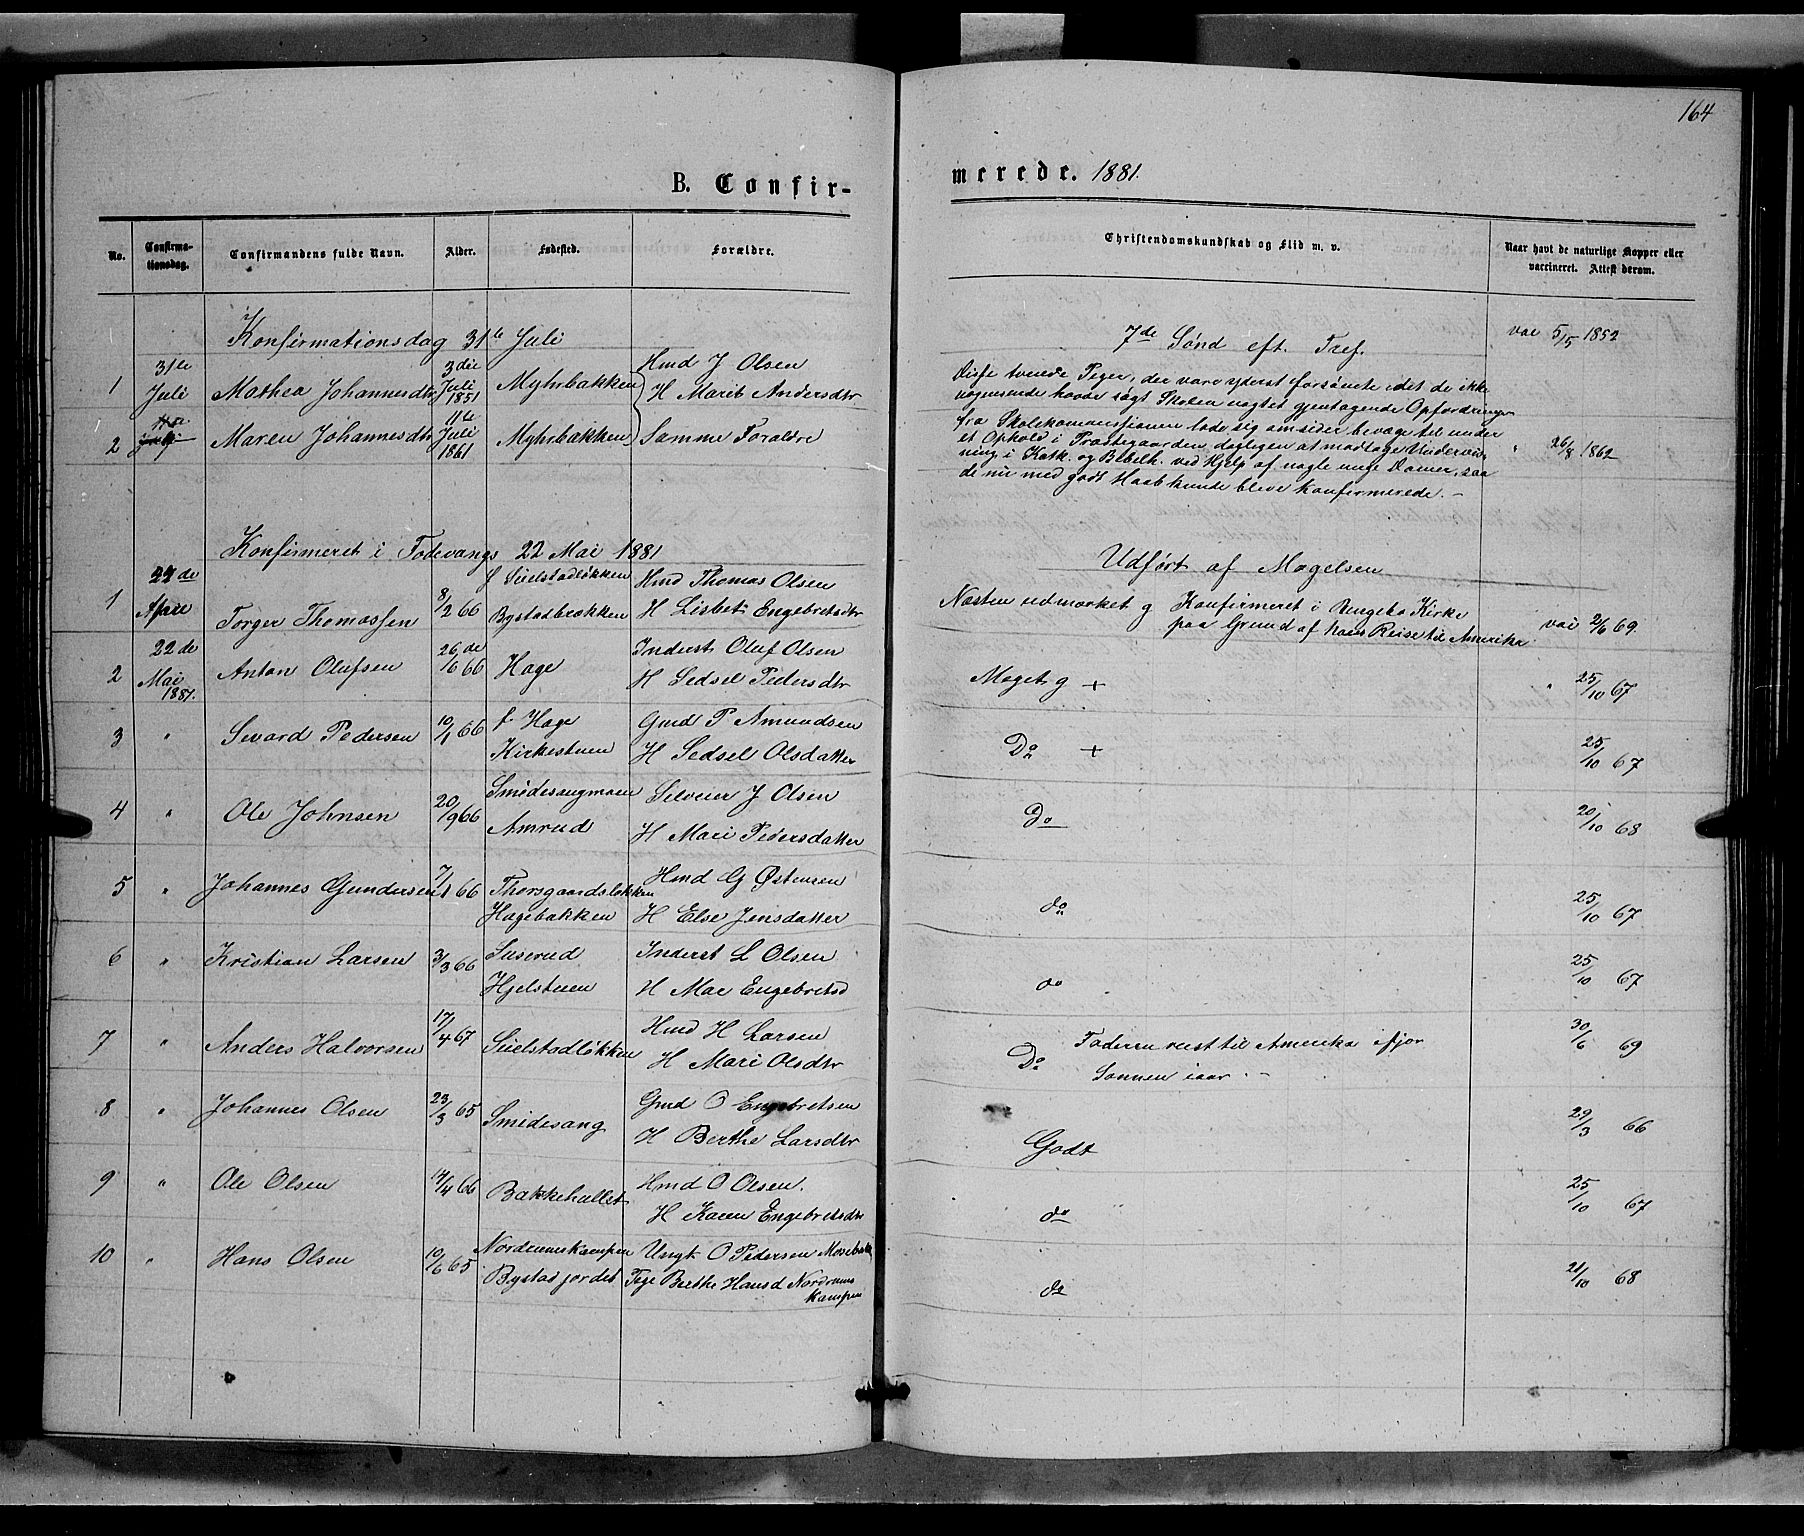 164
B. Confir-
merede. 1881.
No.
Confirma-
tionsdag.
Confirmandens fulde Navn.
Alder.
Fødested.
Forældre.
Christendomskundskab og Flid m. v.
Naar havt de naturlige Kopper eller
vaccineret. Attest derom.
Konfirmationsdag 31te Juli
7de Sønd eft. Tref.
1 31te Juli Mathea Johannesdtr 3die Juli 1851 Myhrbakken Hmd J Olsen
H Marit Andersdtr
vac 5/5 1852
2 Maren Johannesdtr 11te Juli 1861 Myhrbakken Samme Forældre
" 26/8 1862
Disse tvende Piger, der vare yderst forsømte idet de ikke
nogensende havde søgt Skolen uagtet gjentagende Opfordringer
fra Skolekommissjonen lode sig omsider bevæge til under
et Ophold i Præstegaarden dagligen at modtage Undervis
ning i Katk. og Bibelh. ved Hjelp af nogle unge Damer, saa
de nu med godt Haab kunde bleve konfirmerede. -
Konfirmeret i Fodevangs 22 Mai 1881
Udført af Magelsen
1 22de April Torger Thomassen 8/2 66 f Suelstadløkken
Bystadbrækken
Hmd Thomas Olsen
H Lisbet Engebretsdtr
Næsten udmærket g Konfirmeret i Ringebo Kirke
paa Grund af hans Reise til Amerika
vac 2/6 69.
2 22de Mai 1881. Anton Olufsen 26de/6 66 Hage Inderst Oluf Olsen
H Sedsel Pedersdtr
Meget g + " 25/10 67
3 " Sevard Pedersen 10/1 66 f Hage
Kirkestuen
Gmd P Amundsen
H Sedsel Olsdatter
Do + 25/10 67
4 " Ole Johnsen 20/9 66 Smidesangmoen
Amrud
Selveier J Olsen
H Mari Pedersdatter
Do 20/10 68
5 " Johannes Gundersen 7/1 66 Thorsgaardsløkken
Hagebakken
Hmd G Østensen
H Else Jensdatter
do 25/10 67
6 " Kristian Larsen 3/3 66 Suserud
Hjelstuen
Inderst L Olsen
H Mar Engebretsd
do 25/10 67
7 " Anders Halvorsen 17/4 67 Suelstadløkken Hmd H Larsen
H Mari Olsdtr
Do Faderen reist til Amerika ifjor
Sønnen iaar -
30/6 69
8 " Johannes Olsen 23/3 65 Smidesang Gmd O Engebretsen
H Berthe Larsdtr
Godt 29/3 66
9 " Ole Olsen 14/4 66 Bakkehallet Hmd O Olsen.
H Karen Engebretsdtr
do 25/10 67
10 " Hans Olsen 10/6 65 Nordrumskampen
Bystadjordet
Ungk O Pedersen Mosebak
Pige Berthe Hansd Nordrums
kampen
do 21/10 68